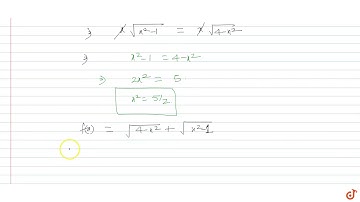 ⇒ x√(x²-1) = x√(4-x²)
⇒ x²-1 = 4-x²
⇒ 2x² = 5
x² = 5/2
f(x) = √(4-x²) + √(x²-1)